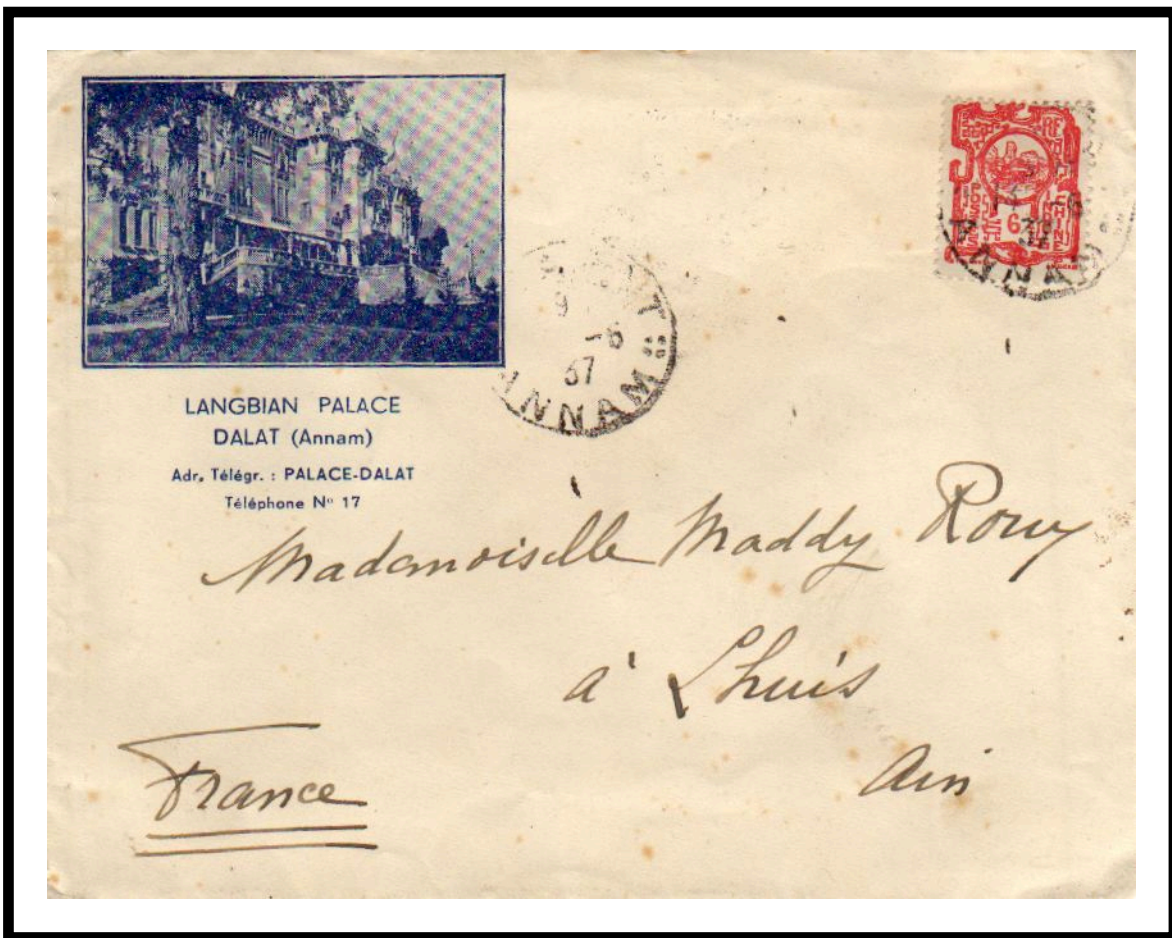 LANGBIAN PALACE
DALAT (Annam)
Adr. Télégr. : PALACE-DALAT
Téléphone Nº 17
9
-6
37
ANNAM
RF
6
ANNAM
Mademoiselle Maddy
à Lhuis
Ain
France